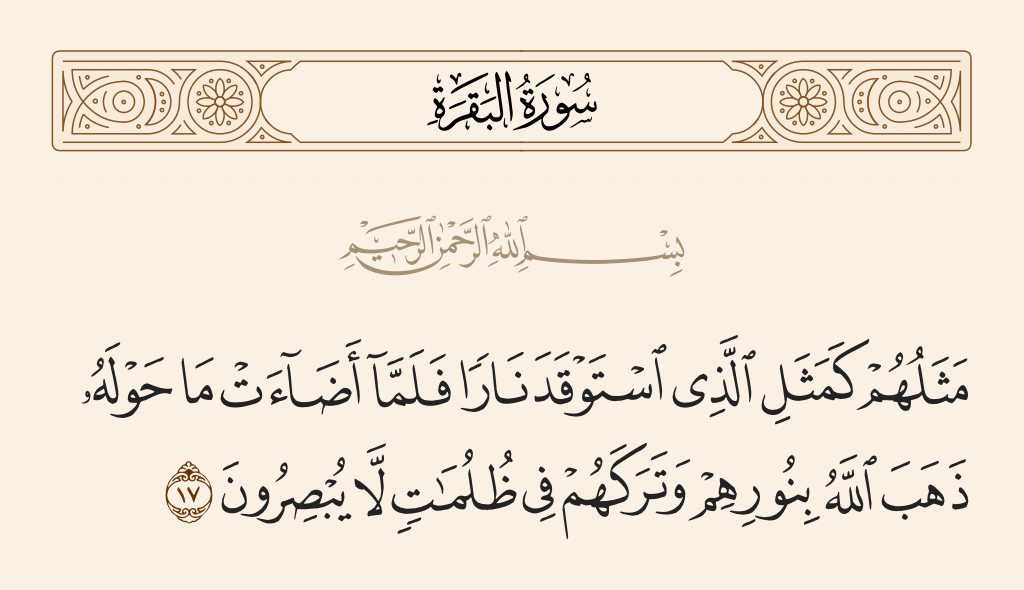 سُورَةُ الْبَقَرَةِ
بِسْمِ ٱللَّهِ ٱلرَّحْمَٰنِ ٱلرَّحِيمِ
مَثَلُهُمْ كَمَثَلِ ٱلَّذِى ٱسْتَوْقَدَ نَارًا فَلَمَّآ أَضَآءَتْ مَا حَوْلَهُۥ
ذَهَبَ ٱللَّهُ بِنُورِهِمْ وَتَرَكَهُمْ فِى ظُلُمَٰتٍ لَّا يُبْصِرُونَ ١٧